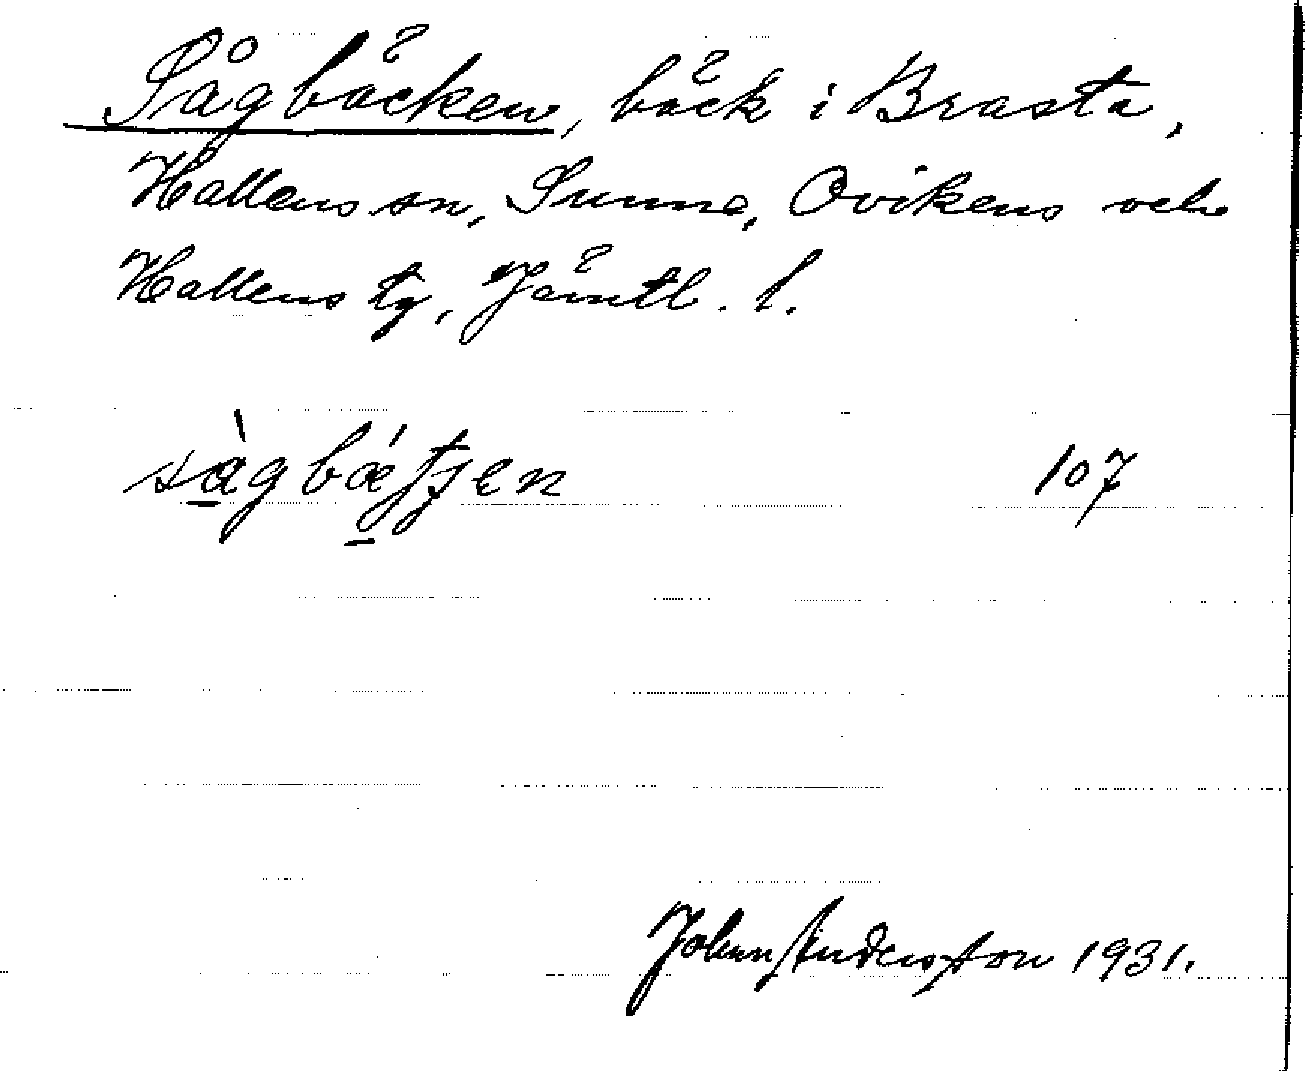 Sågbäcken, bäck i Brasta,
Hallens sn, Sunne, Ovikens och
Hallens tg, Jämtl. l.
107
Johan Andersson 1931.